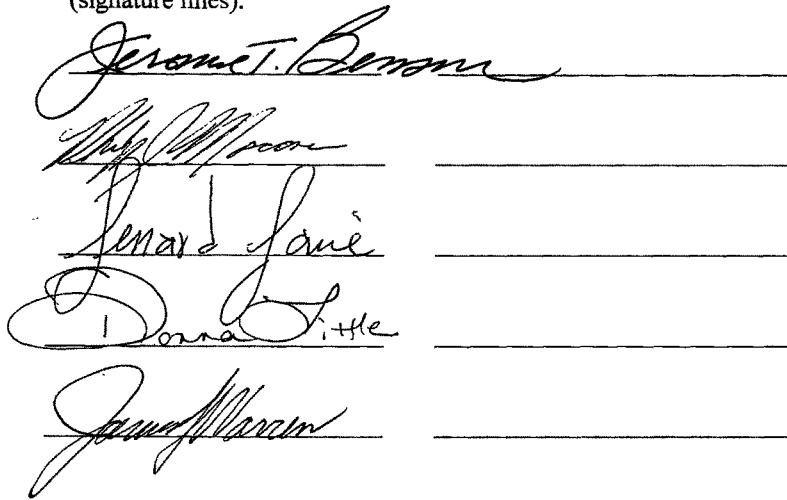 (signature lines).
Jerome T. Benson
Moore
Lenard
Donna Little
Warren